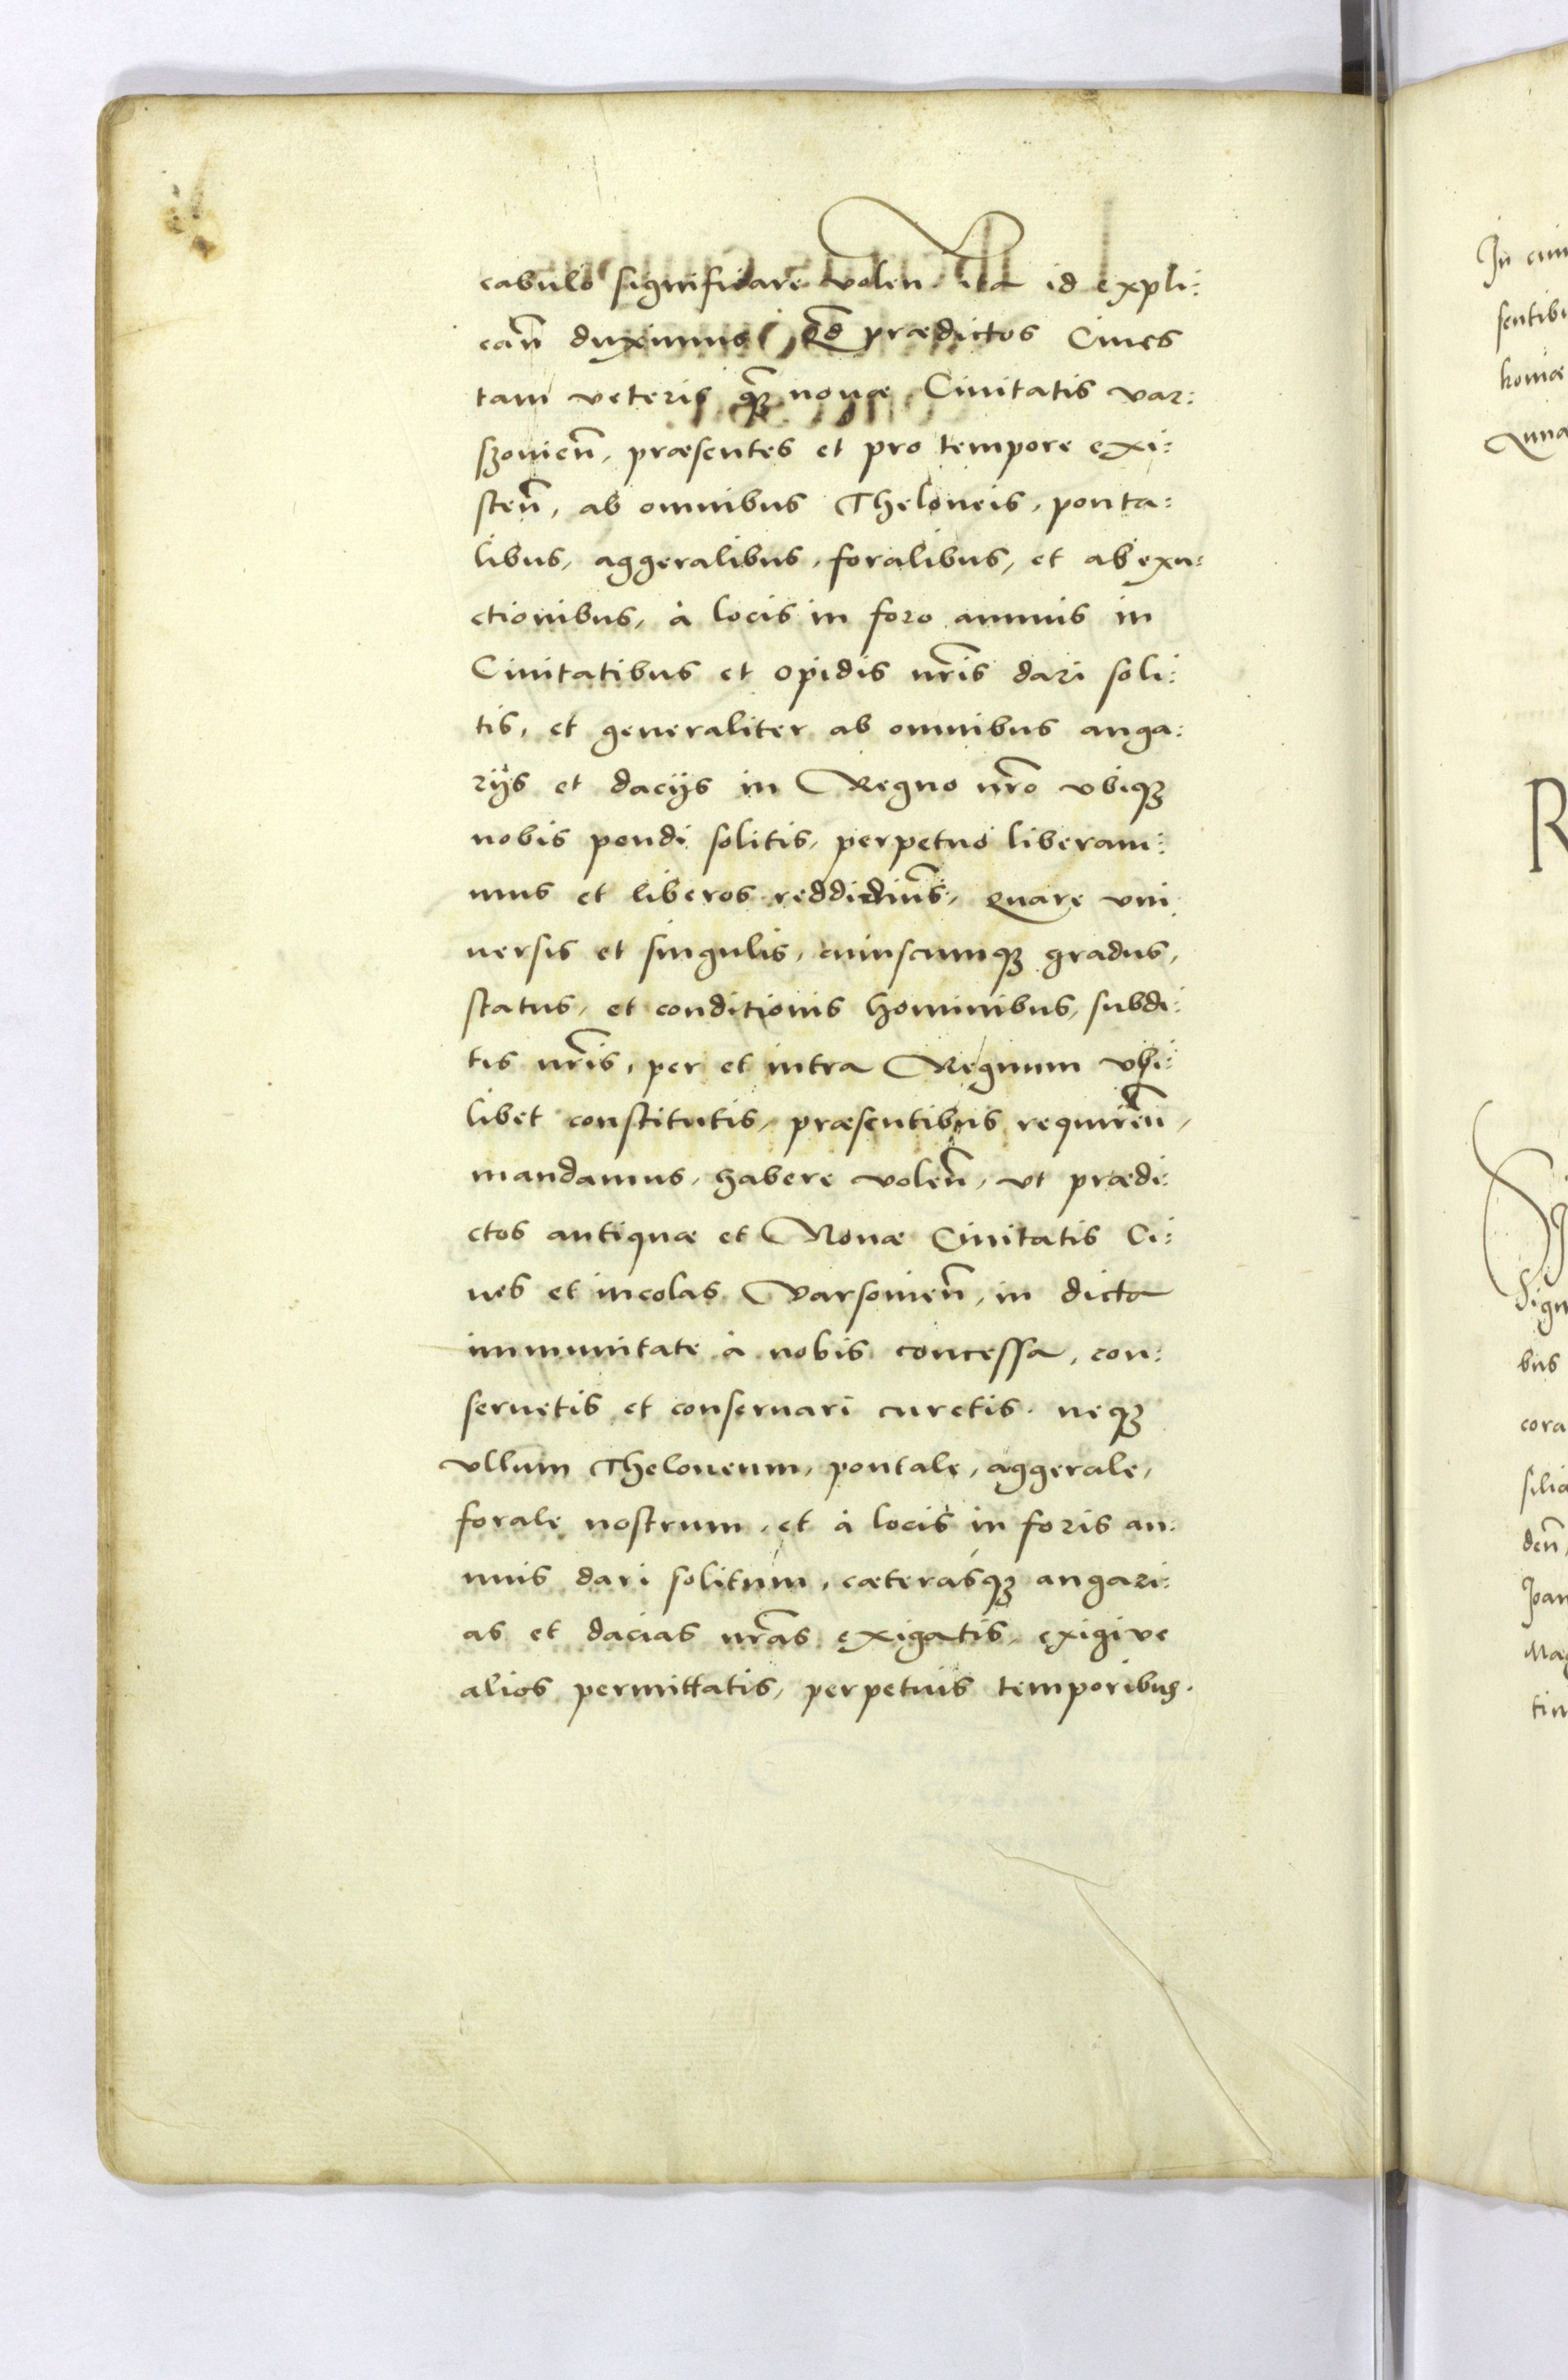 cabulo significare volen̄ ita id expli:
can̄ duximus, Qd̄ prædictos Ciues
tam veteris q̄ꝫ nouæ Ciuitatis var:
szouien̄, præsentes et pro tempore exi:
sten̄, ab omnibus Theloneis, ponta:
libus, aggeralibus, foralibus, et ab exa:
ctionibus, à locis in foro annuis in
Ciuitatibus et opidis nr̄is dari soli:
tis, et generaliter ab omnibus anga:
rijs et dacijs in Regno nr̄o vbiqꝫ
nobis pendi solitis, perpetuò liberaui:
mus et liberos reddidim̄s, quare vni
uersis et singulis, cuiuscumqꝫ gradus,
status, et conditionis hominibus, subdi:
tis nr̄is, per et intra Regnum vbi:
libet constitutis, præsentibus requiren̄,
mandamus, habere volen̄, vt prædi:
ctos antiquæ et Nouæ Ciuitatis Ci:
ues et incolas Varsouien̄, in dicta
immunitate à nobis concessa, con:
seruetis et conseruari curetis. neqꝫ
vllum Theloneum, pontale, aggerale,
forale nostrum, et à locis in foris an:
nuis dari solitum, cæterasqꝫ angari:
as et dacias nr̄as exigatis, exigi ve
alios permittatis, perpetuis temporibus.
sentibu
Sign
bus
cora
den̄,